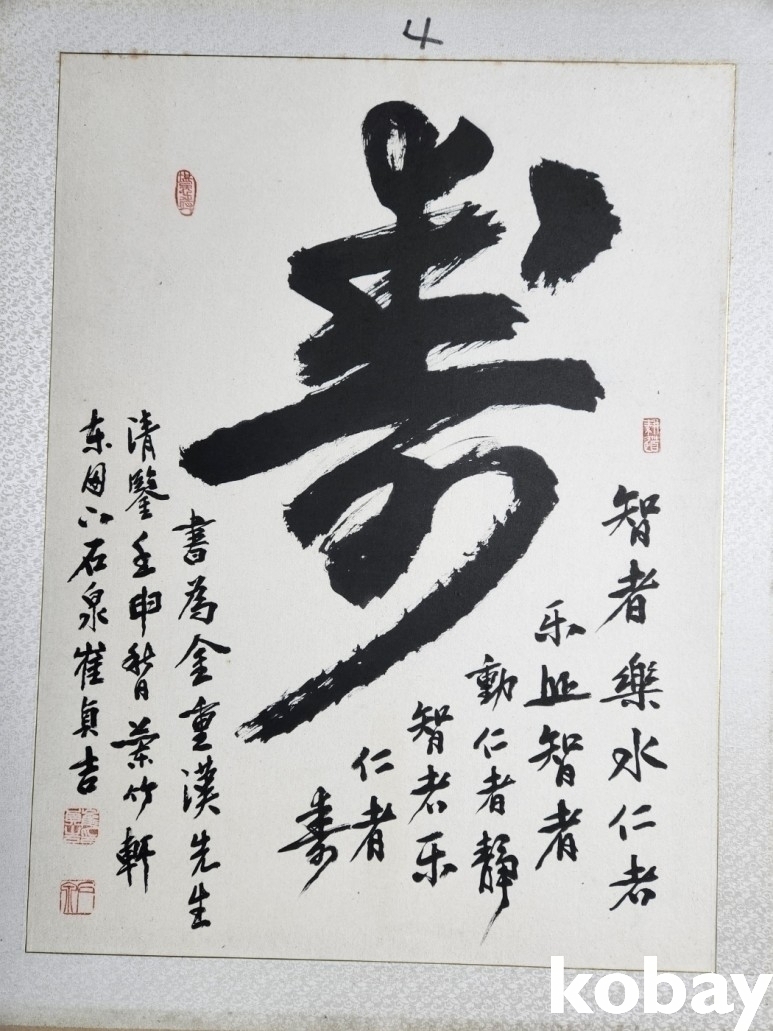 4
寿
智者樂水仁者
乐山智者
動仁者靜
智者乐
仁者
寿
書為金重漢先生
清鑒壬申秋日竹軒
东国石泉崔貞吉
kobay